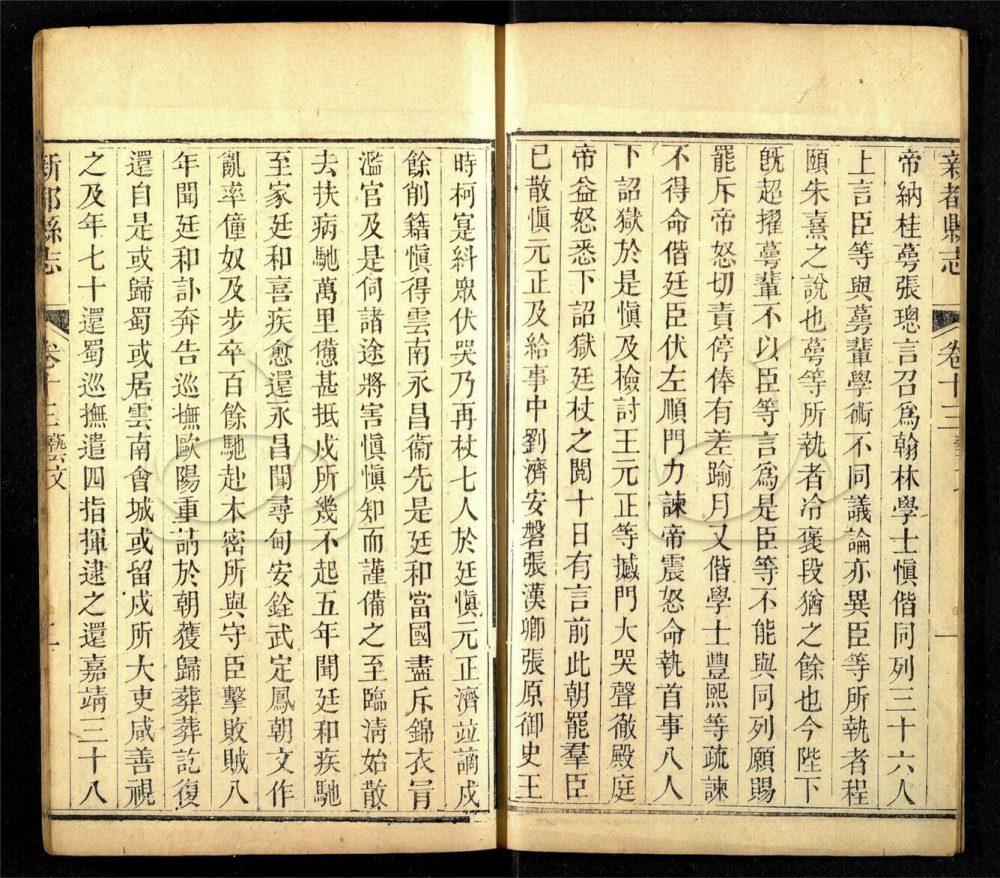 新都縣志
卷十三
一
帝納桂萼張璁言召爲翰林學士愼偕同列三十六人
上言臣等與萼輩學術不同議論亦異臣等所執者程
頤朱熹之說也萼等所執者冷褒段猶之餘也今陛下
旣超擢萼輩不以臣等言爲是臣等不能與同列願賜
罷斥帝怒切責停俸有差踰月又偕學士豐熙等疏諫
不得命偕廷臣伏左順門力諫帝震怒命執首事八人
卜詔獄於是愼及檢討王元正等撼門大哭聲徹殿庭
帝益怒悉下詔獄廷杖之閱十日有言前此朝罷羣臣
已散愼元正及給事中劉濟安磐張漢卿張原御史王
時柯寔糾眾伏哭乃再杖七人於廷愼元正濟竝謫戍
餘削籍愼得雲南永昌衞先是廷和當國盡斥錦衣冐
濫官及是伺諸途將害愼愼知而謹備之至臨淸始散
去扶病馳萬里憊甚抵戍所幾不起五年聞廷和疾馳
至家廷和喜疾愈還永昌聞尋甸安銓武定鳳朝文作
亂率僮奴及步卒百餘馳赴木密所與守臣擊敗賊八
年聞廷和訃奔告巡撫歐陽重請於朝獲歸葬葬訖復
還自是或歸蜀或居雲南會城或留戍所大吏咸善視
之及年七十還蜀巡撫遣四指揮逮之還嘉靖三十八
新都縣志
卷十三 藝文